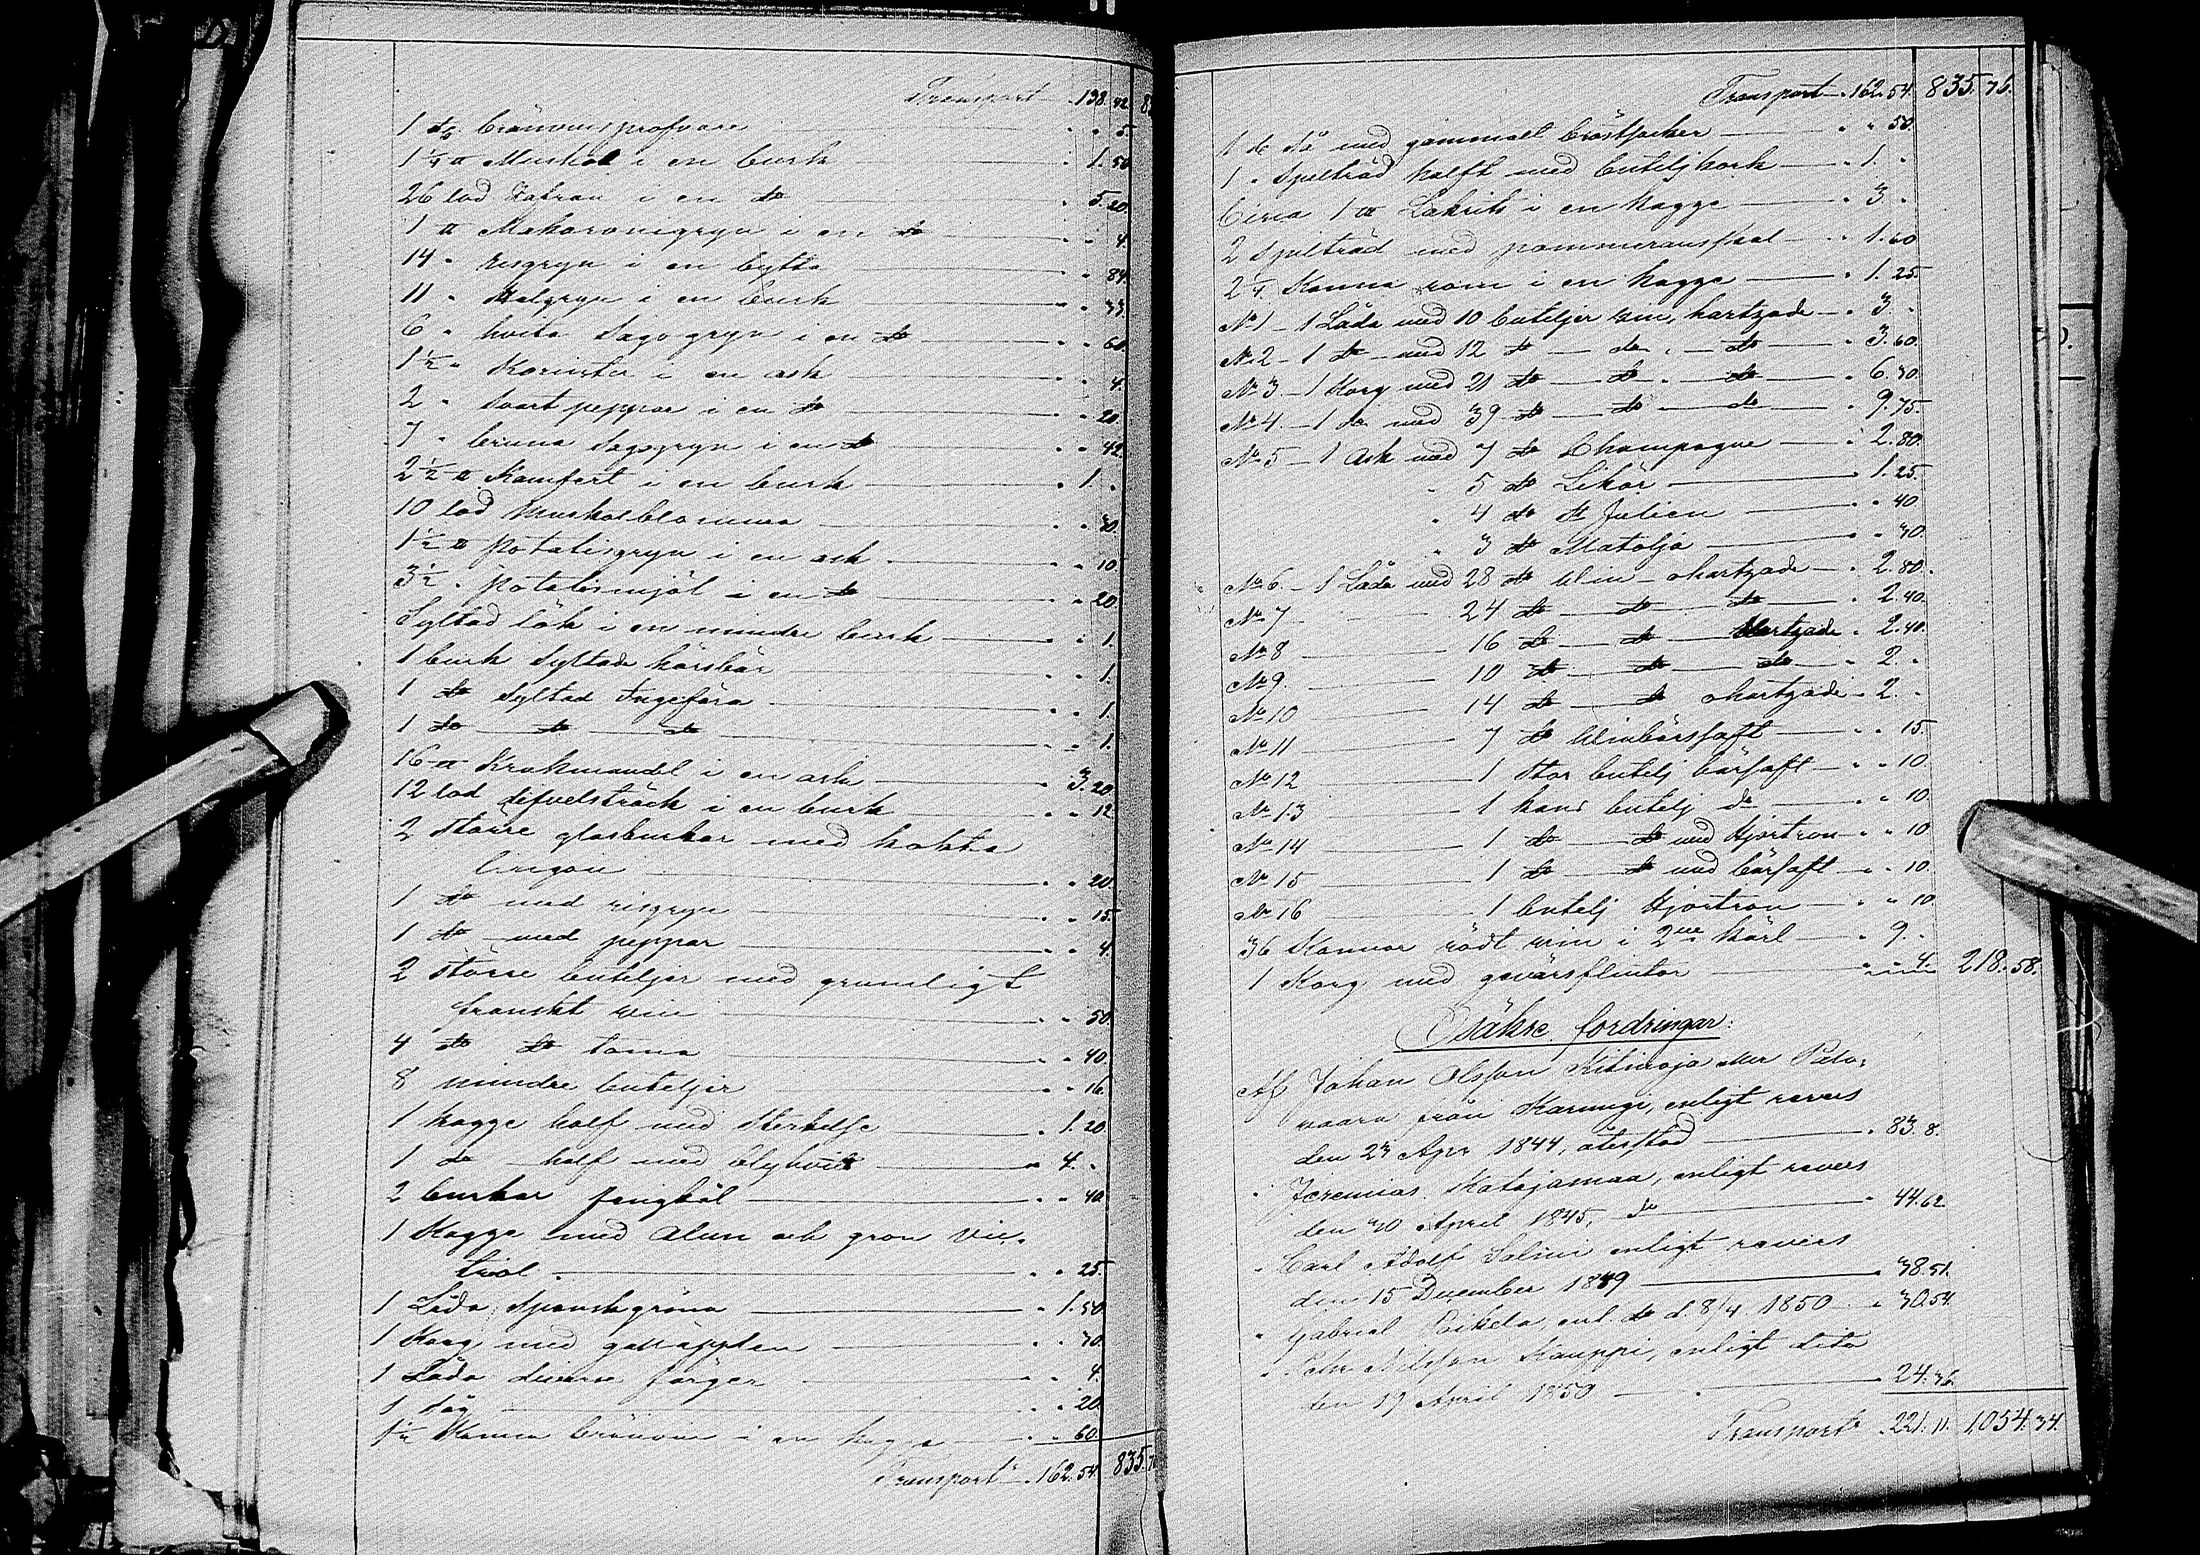 Transport 138. 42.
1 do bränvinsprofvare " " 5.
1 1/4 ℔ Muskot i en burk " 1. 50
26 lod Safran i en do " 5. 20.
1 ℔ Makaronigryn i en do " " 4.
14 " risgryn i en bytta " " 84.
11 " Malgryn i en burk " " 33.
6 " hvita Sagogryn i en do " " 60.
1 1/2 " Korinter i en ask " " 4.
2 " svart peppar i en do " " 20.
7 " bruna Sagogryn i en do " " 42.
2 1/2 ℔ Kamfert i en burk " 1. "
10 lod Muskotblomma " " 30.
1 1/2 ℔ Potatisgryn i en ask " " 10
3 1/2 " Potatismjöl i en do " " 20.
Syltad lök i en mindre burk " " 1.
1 burk Syltade körsbär " " 1.
1 do Syltad Ingefära " " 1.
1 do do do " " 1.
16 ℔ Krakmandel i en ask " 3. 20.
12 lod difvelsträck i en burk " " 12
2 större glasburkar med kokta
lingon " " 20.
1 do med risgryn " " 15.
1 do med peppar " " 4.
2 större buteljer med grumligt
franskt vin " " 50.
4 do do toma " " 40.
8 mindre buteljer " " 16.
1 kagge half med Sterkelse " 1. 20
1 do half med blyhvitt " 4. "
2 burkar " " 40.
1 Kagge med Alun och grön Vic-
triol " " 25.
1 Låda Spanskgröna " 1. 50.
1 Korg med galläpplen " " 30.
1 Låda diverse färger " " 4.
1 såg " " 20.
1 1/2 Kanna bränvin i en kagge " " 60.
Transport 162. 54. 835. 7

Transport 162. 54. 835. 76.
1 do Så med gammalt bröstsocker " " 50.
1 " Spelträd halft med buteljkork " 1. "
Circa 1 ℔ Lakrits i en kagge " 3 "
2 Spelträd med pommeransskal " 1. 60
2 1/4 Kanna rom i en kagge " 1. 25.
No 1 - 1 Låda med 10 buteljer vin, hartzade " 3. "
No 2 - 1 do med 12 do do " do " 3. 60.
No 3 - 1 Korg med 21 do do " do " 6. 30.
No 4 - 1 do med 39 do do do " 9. 75.
No 5 - 1 Ask med 7 do Champagne " 2. 80.
" 5 do Likör " 1. 25.
" 4 do St Julien " " 40
" 3 do Matolja " " 30.
No 6 - 1 Låda med 28 do Win ohartzade " 2. 80.
No 7 24 do do do " 2. 40.
No 8 16 do do Hartzade " 2. 40.
No 9. 10 do do do " 2. "
No 10 14 do do ohartzade " 2. "
No 11 7 do Winbärssaft " " 15.
No 12 1 stor butelj bärsaft " " 10
No 13 1 hans butelj do " " 10.
No 14 1 do do med Hjortron " " 10
No 15 1 do do med bärsaft " " 10.
No 16 1 butelj Hjortron " " 10
36 Kannor rödt vin i 2ne kärl " 9. "
1 Korg med gevärsflintor " " 4. 218. 58.
Osäkre fordringar:
Af Johan Olsson Kitinoja eller Palo-
vaara från Karungi, enligt revers
den 23 Apr 1844, återstod " 83. 8.
" Jeremias Katajamaa, enligt revers
den 30 April 1845, do " 44. 62.
" Carl Adolf Salini enligt revers
den 15 December 1849 " 38. 51.
" Gabriel Eikela, enl. do d. 8/4 1850 " 30. 54.
" Pehr Nilsson Kauppi, enligt dito
den 19 April 1850 " 24. 36.
Transport 221. 11. 1,054. 34.